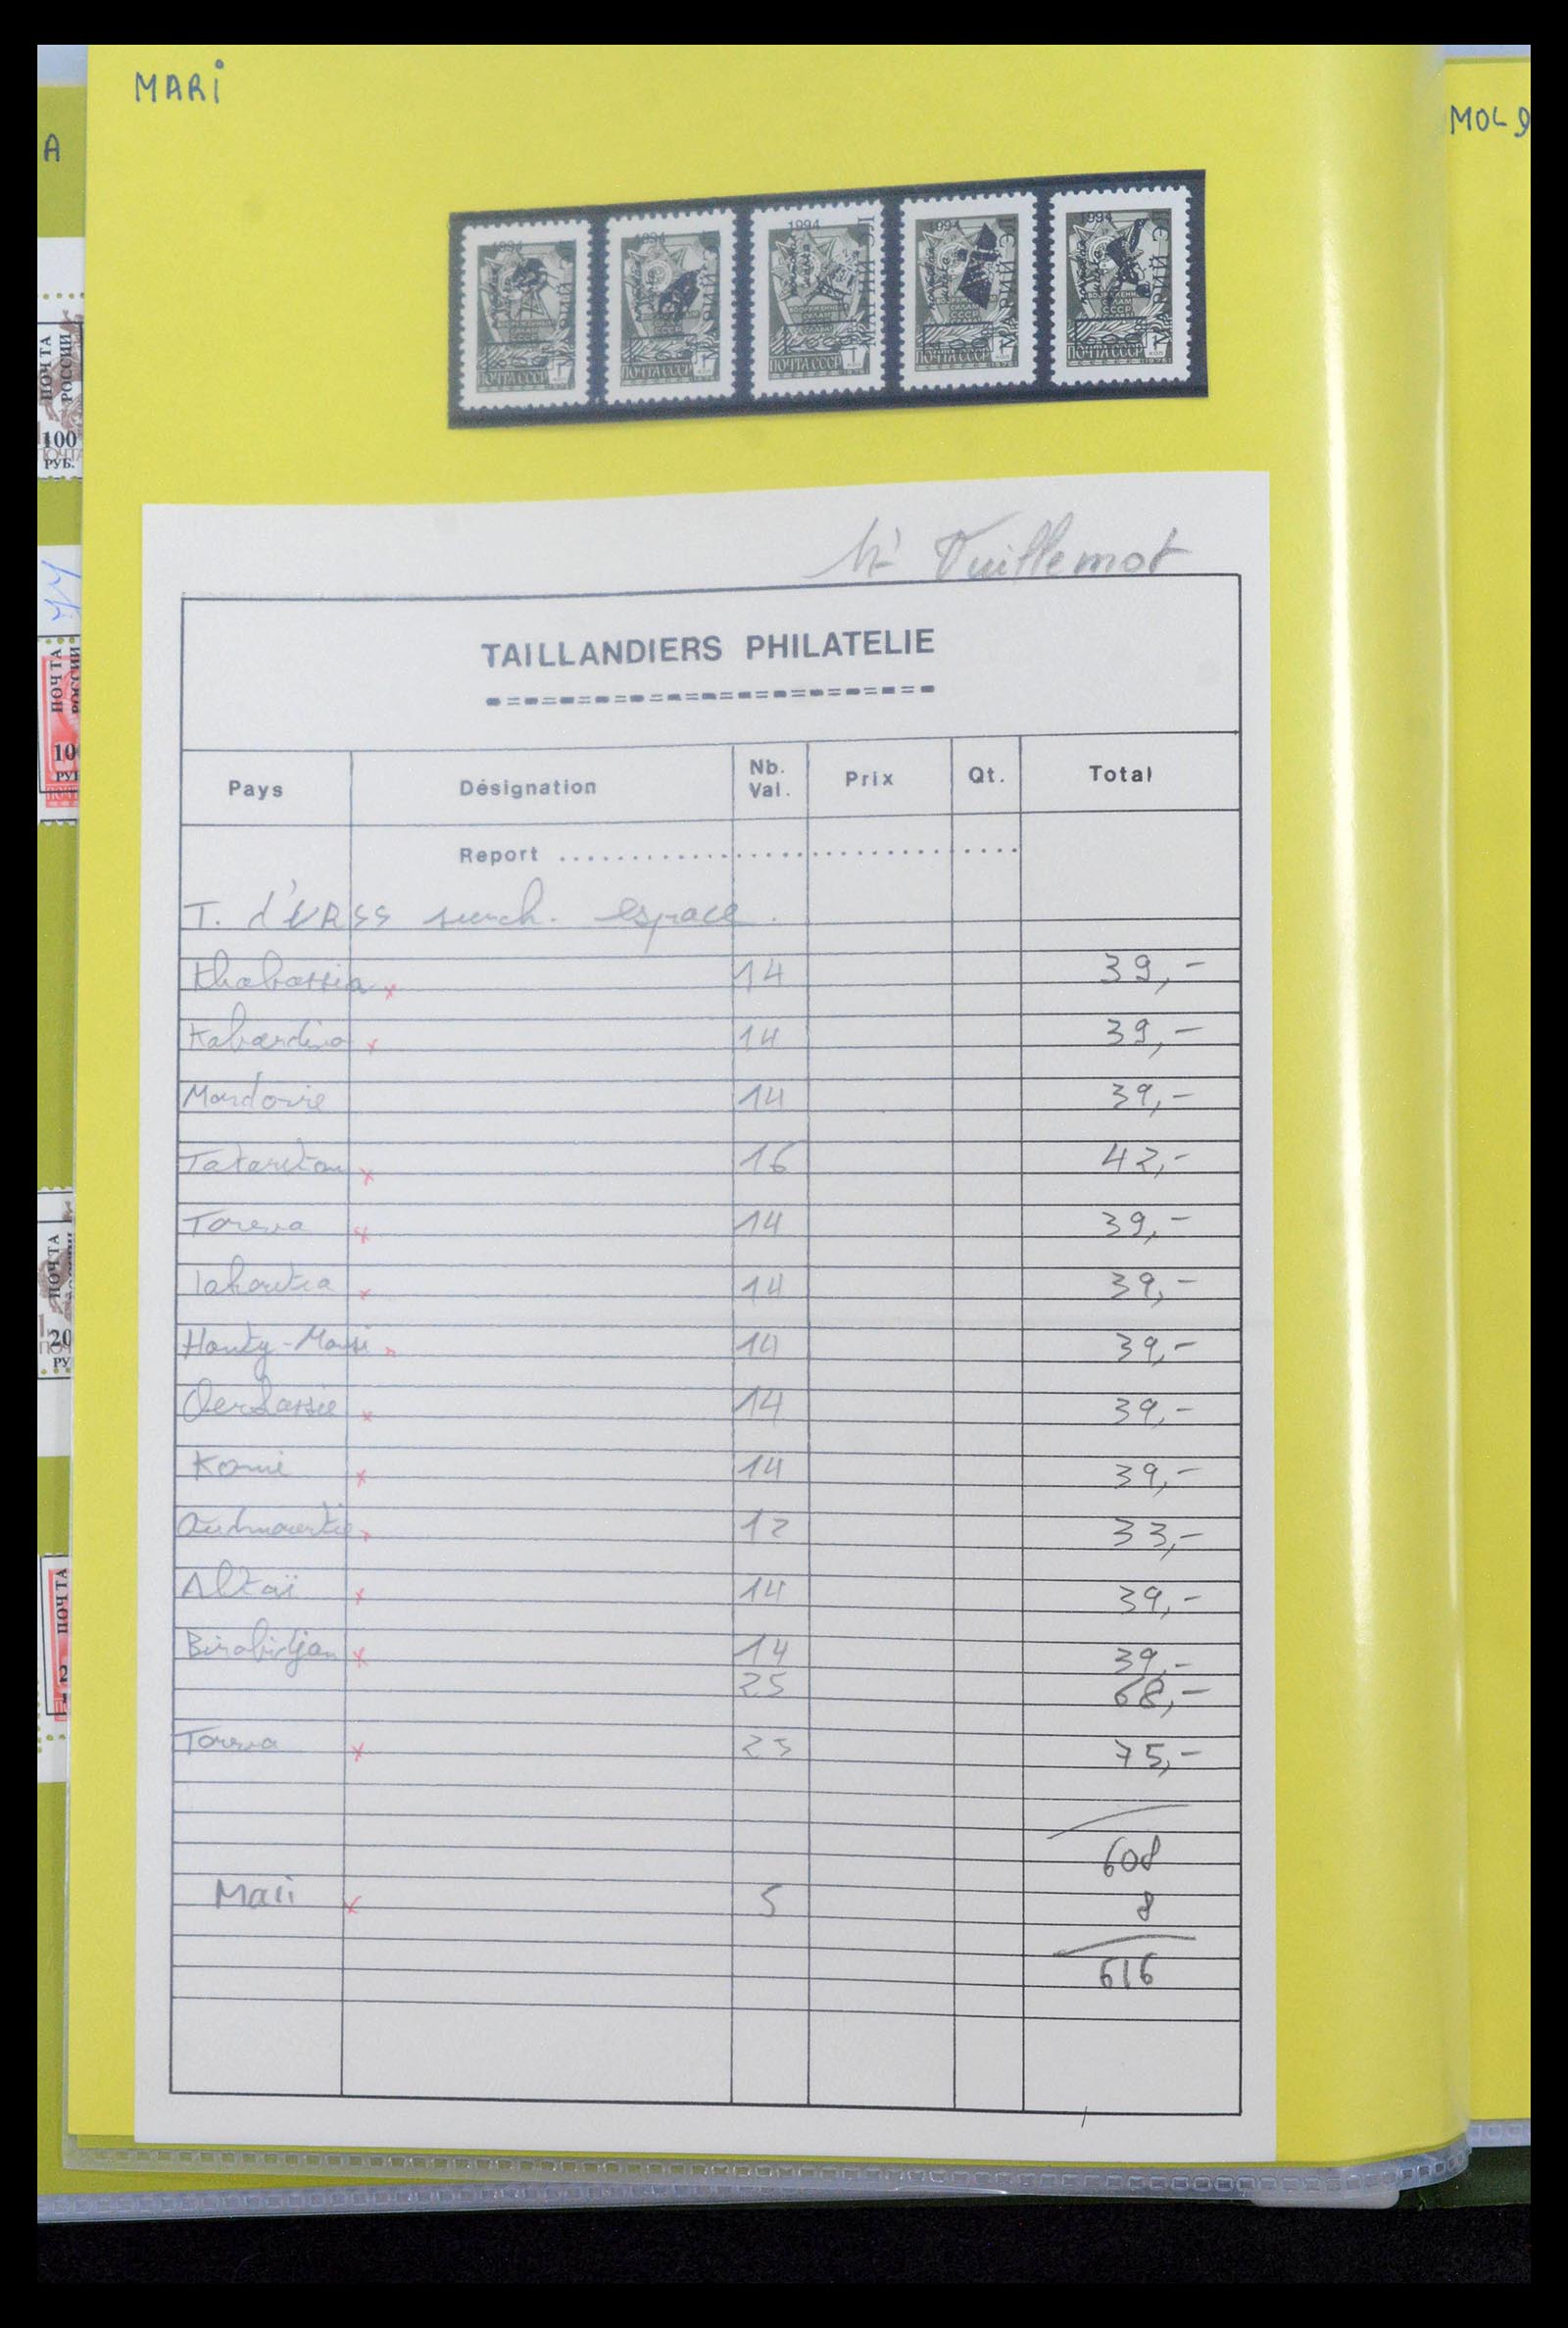 MARI
A
MOLD
1994 1994 1994 1994 1994
ПОЧТА СССР ПОЧТА СССР ПОЧТА СССР ПОЧТА СССР ПОЧТА СССР
ПОЧТА РОССИИ
100
РУБ.
ПОЧТА
10
ПОЧТА
20
ПОЧТА
2
Mr Vuillemot
TAILLANDIERS PHILATELIE
Pays Désignation Nb. Val. Prix Qt. Total
Report ........................................
T. d'URSS surch. espace.
Khabassia x 14 39,-
Kabardino x 14 39,-
Mordovie 14 39,-
Tatarstan x 16 42,-
Toreva x 14 39,-
Iakoutia x 14 39,-
Hanty-Mansi x 14 39,-
x 14 39,-
Komi x 14 39,-
Oudmourtie x 12 33,-
Altaï x 14 39,-
Birobidjan x 14 39,-
25 68,-
x 25 75,-
608
Mari x 5 8
616